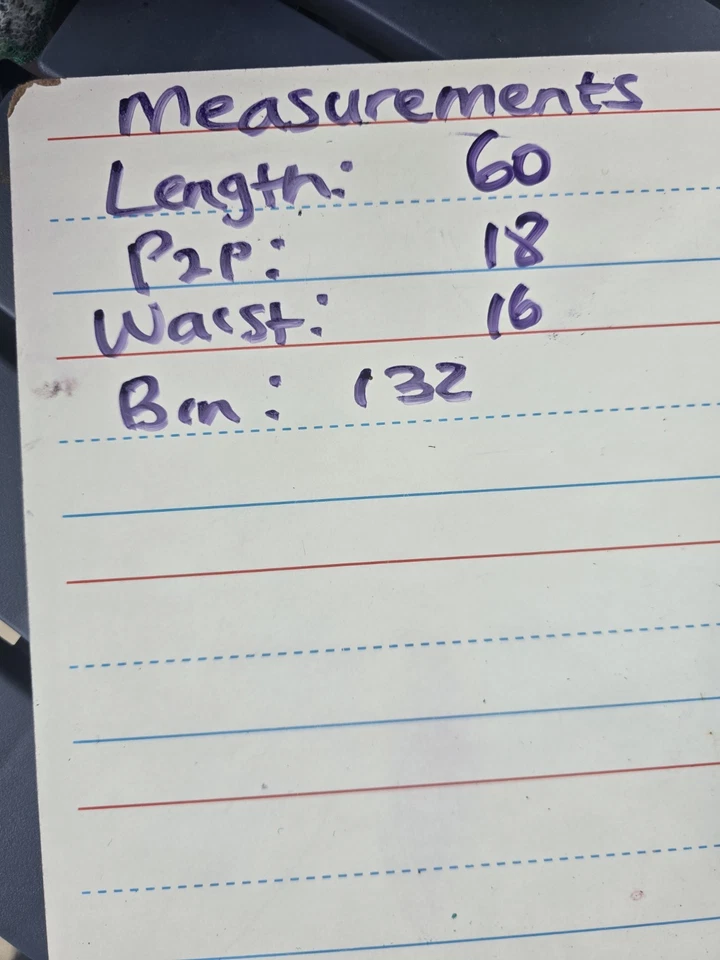 Measurements
Length: 60
P2P: 18
Waist: 16
Bin: 132